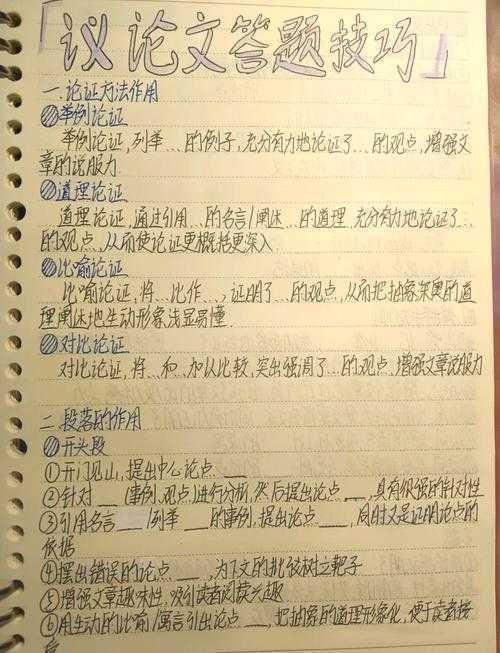 「议论文答题技巧」
一.论证方法作用
举例论证
举例论证,列举…的例子,充分有力地论证了…的观点,增强文
章的说服力
道理论证
道理论证,通过引用…的名言/阐述…的道理,充分有力地论证了…
的观点,从而使论证更概括更深入
比喻论证
比喻论证,将…比作…,证明了…的观点,从而把抽象深奥的道
理阐述地生动形象浅显易懂.
对比论证
对比论证,将…和…加以比较,突出强调了…的观点,增强文章说服力
二.段落的作用
开头段
①开门见山,提出中心论点___
②针对___(事例,观点)进行分析,然后提出论点___,具有很强的针对性
③引用名言___/列举___的事例,提出论点___,同时又是证明论点的
依据
④摆出错误的论点___,为下文的批驳树立靶子
⑤增强文章趣味性,吸引读者阅读兴趣
⑥用生动的比喻/寓言引出论点___,把抽象的道理形象化,便于读者接